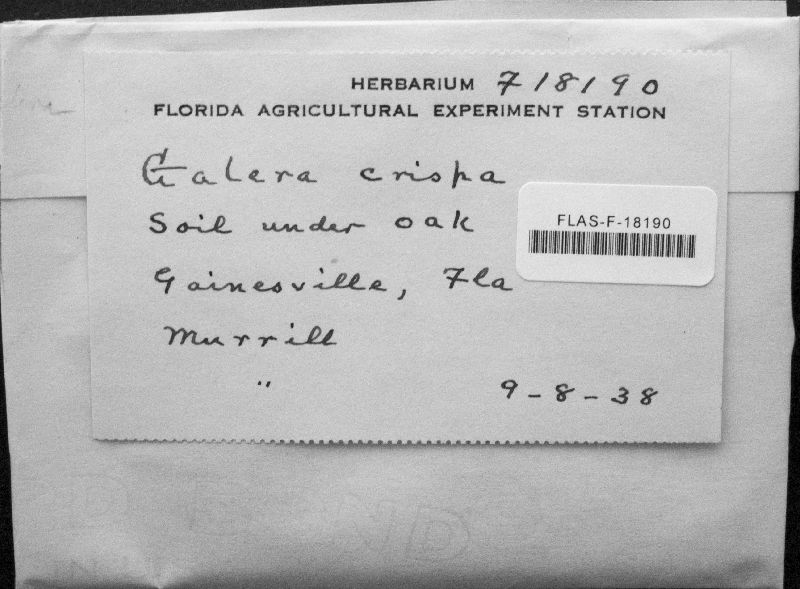 HERBARIUM F18190
FLORIDA AGRICULTURAL EXPERIMENT STATION
Galera crispa
Soil under oak
FLAS-F-18190
Gainesville, Fla
Murrill
" 9-8-38